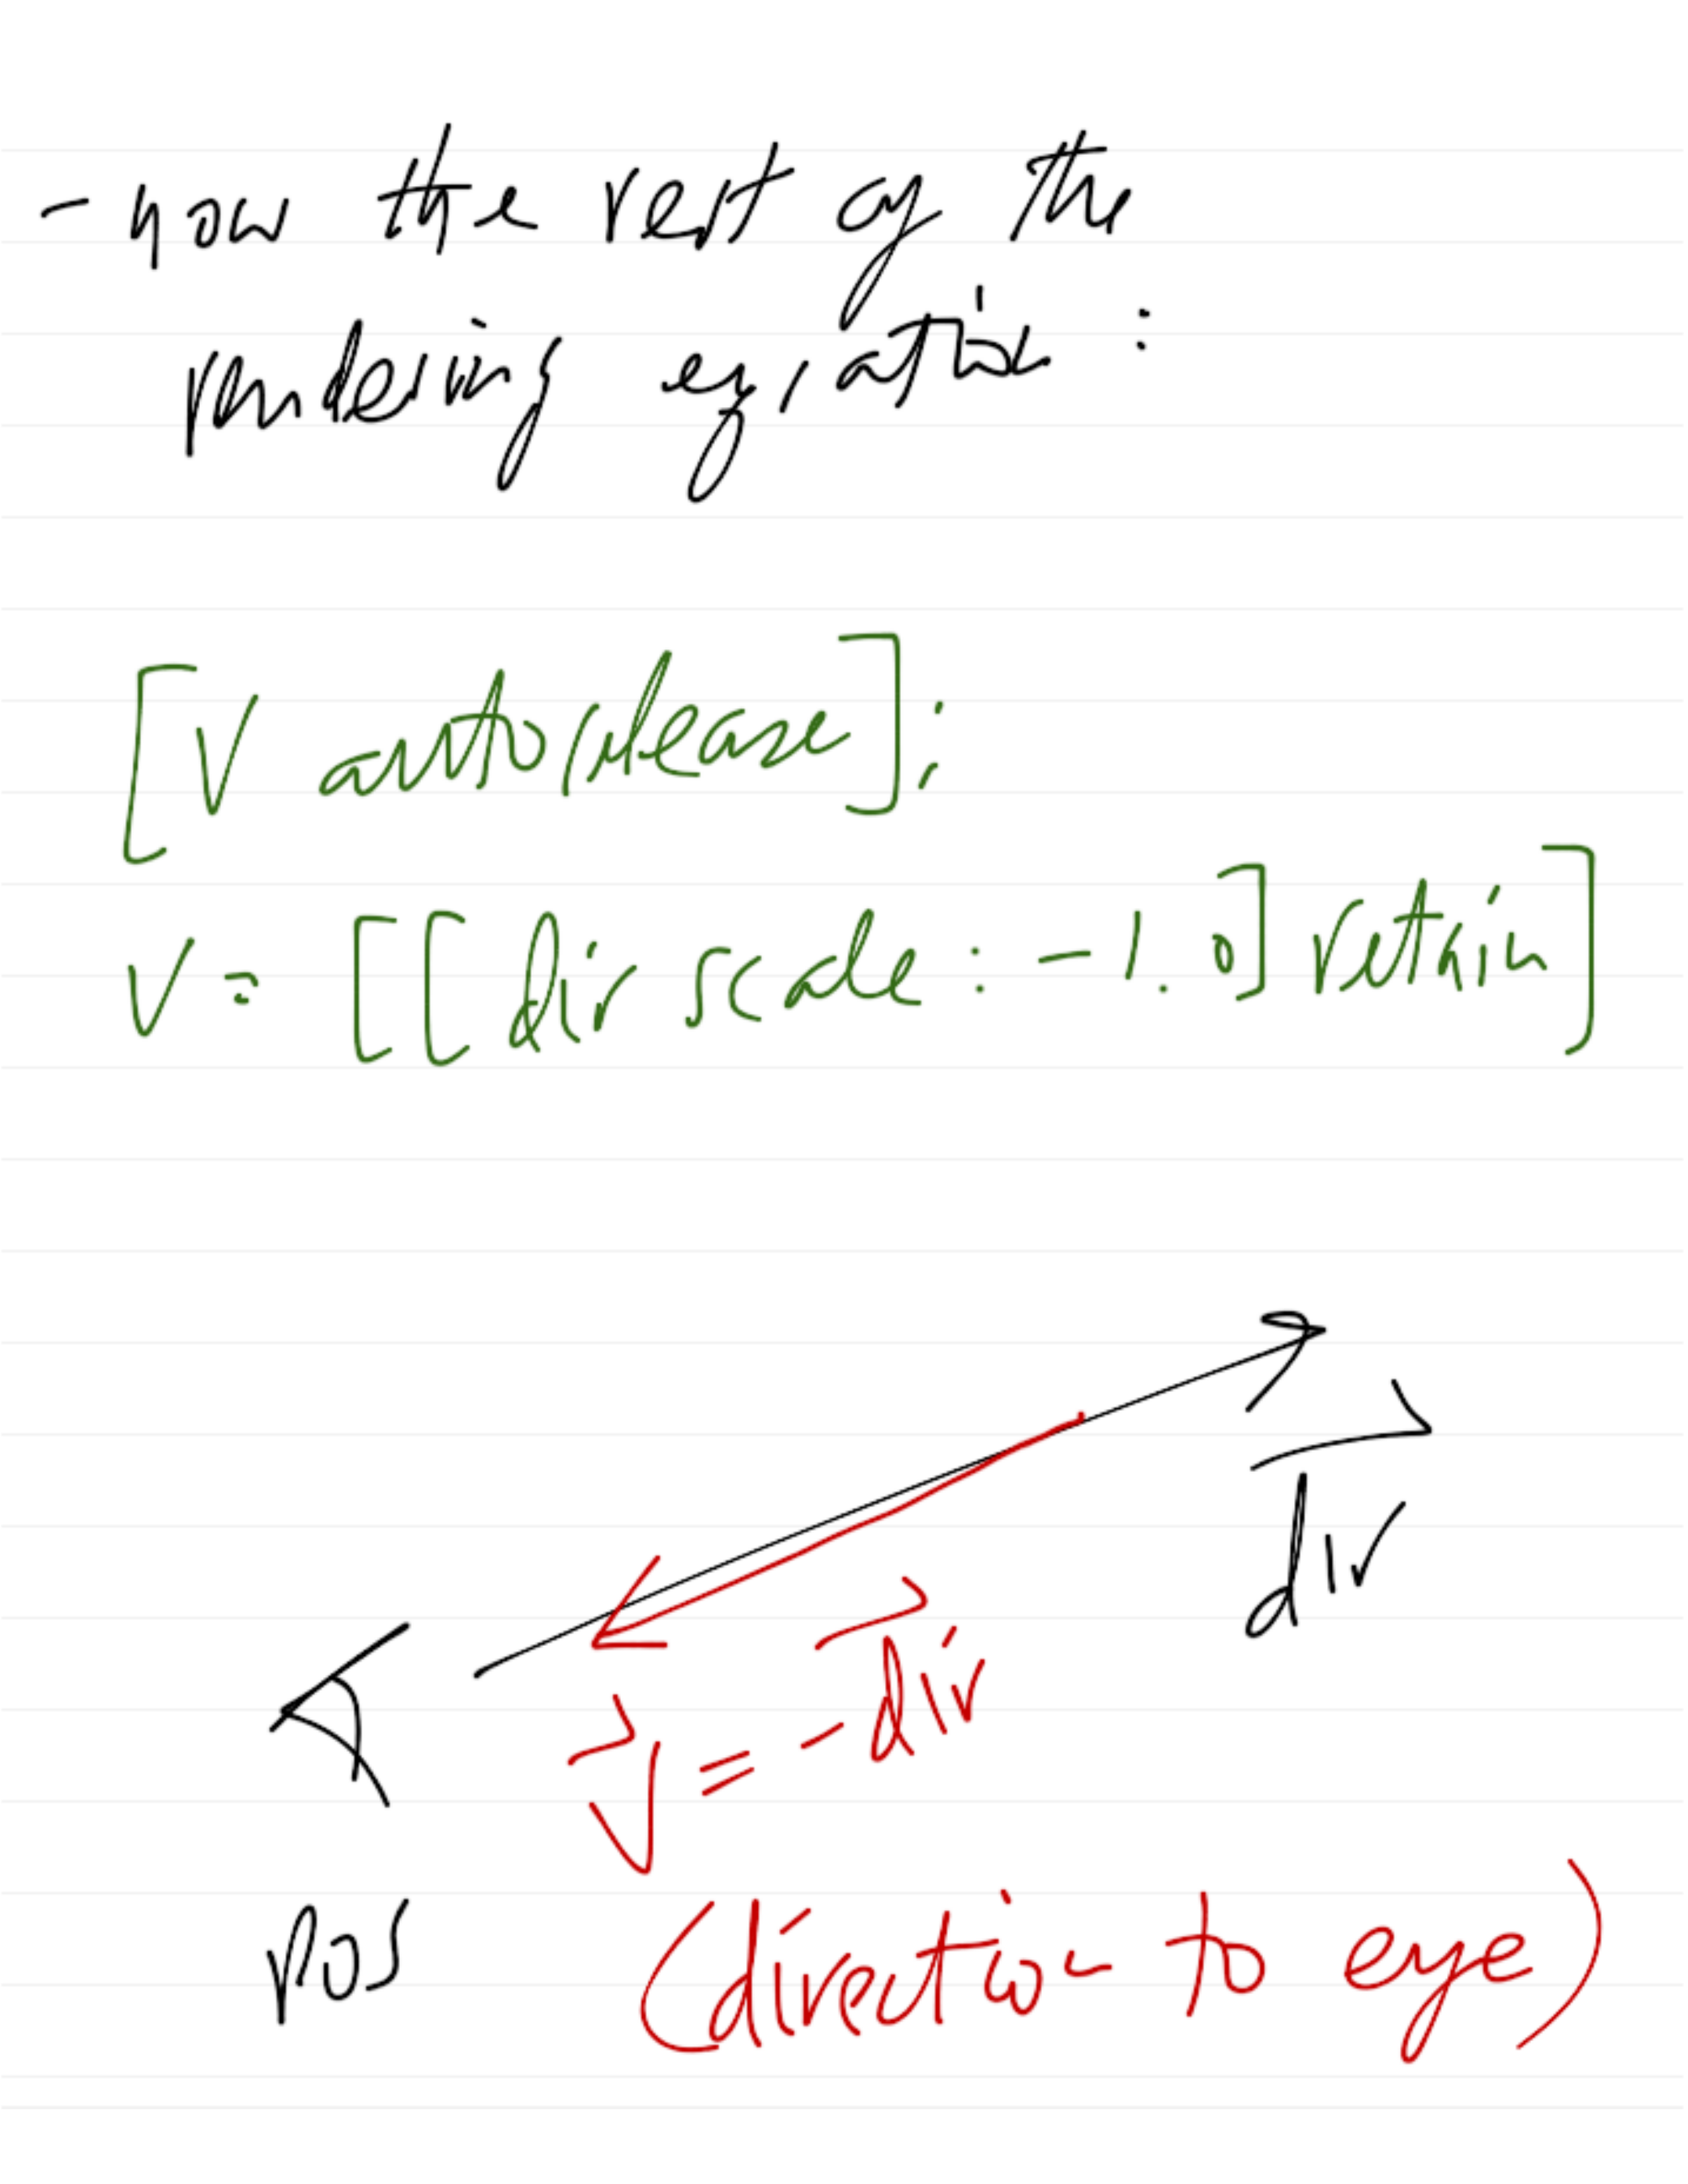 - now the rest of the
rendering equation :
[V autorelease];
V = [[dir scale : -1.0] retain]
dir
V = - dir
pos
(direction to eye)